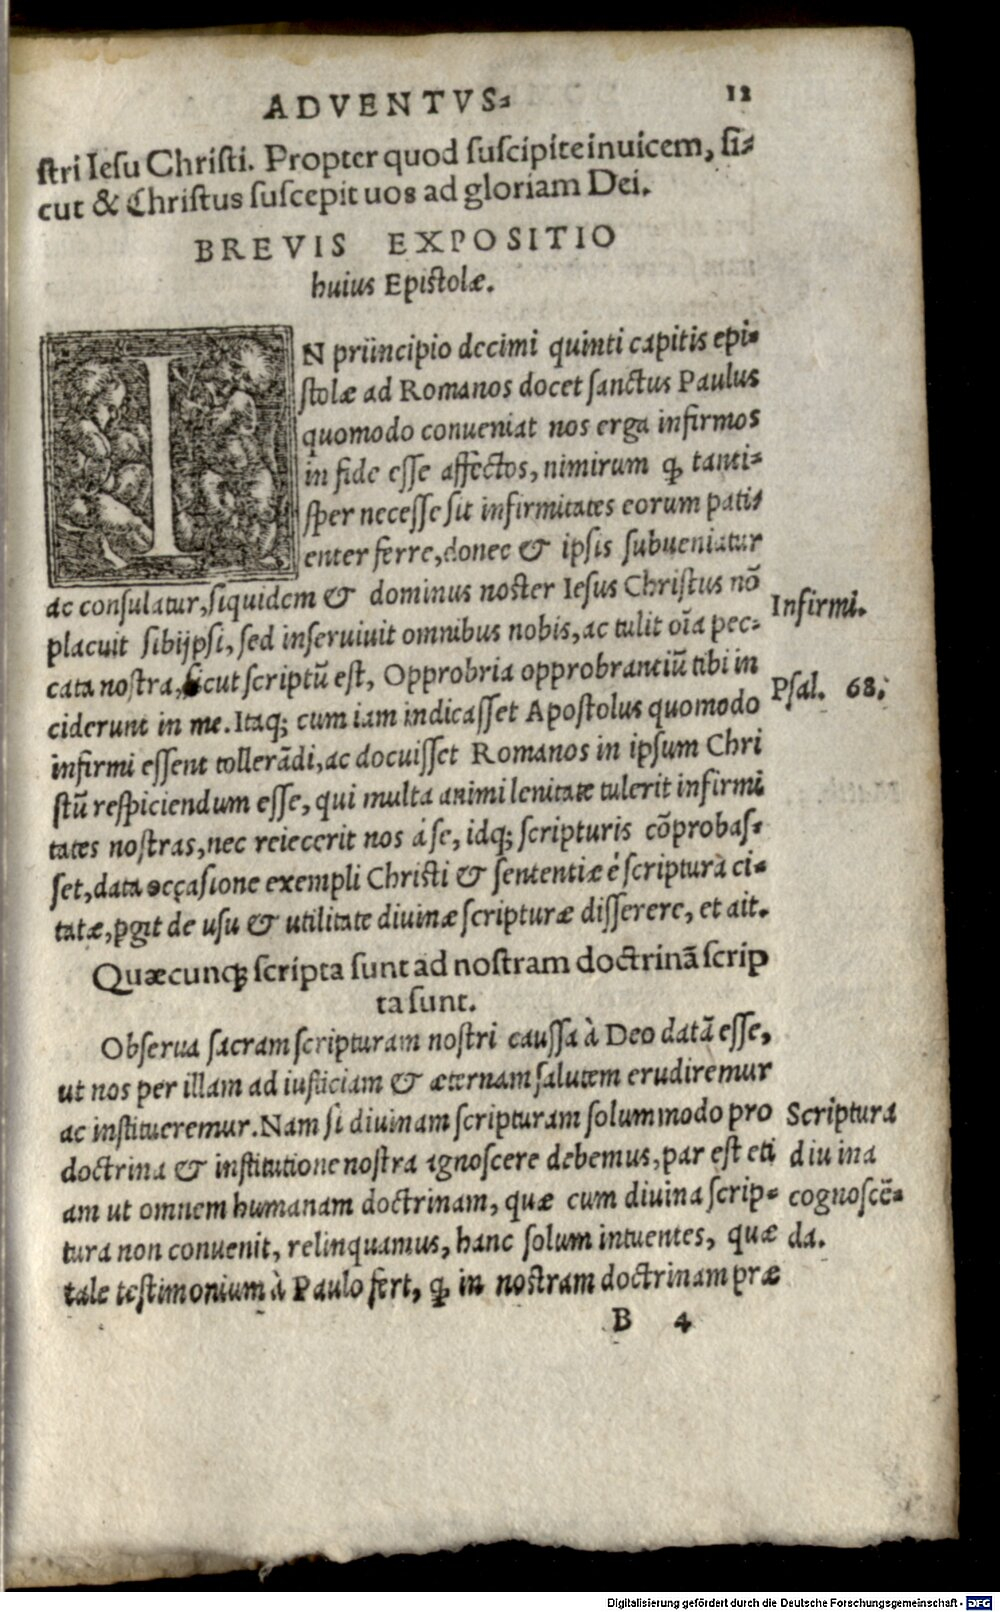 ADVENTVS⸗ 12
stri Iesu Christi. Propter quod suscipite inuicem, si⸗
cut & Christus suscepit uos ad gloriam Dei.
BREVIS EXPOSITIO
huius Epistolæ.
IN priincipio decimi quinti capitis epi⸗
stolæ ad Romanos docet sanctus Paulus
quomodo conueniat nos erga infirmos
in fide esse affectos, nimirum ꝙ tanti⸗
sper necesse sit infirmitates eorum pati⸗
enter ferre, donec & ipsis subueniatur
ac consulatur, siquidem & dominus noster Iesus Christus nō
placuit sibijpsi, sed inseruiuit omnibus nobis, ac tulit oīa pec⸗
cata nostra, sicut scriptū est, Opprobria opprobrantiū tibi in
ciderunt in me. Itaq; cum iam indicasset Apostolus quomodo
infirmi essent tollerādi, ac docuisset Romanos in ipsum Chri
stū respiciendum esse, qui multa animi lenitate tulerit infirmi
tates nostras, nec reiecerit nos à se, idq; scripturis cōprobas⸗
set, data occasione exempli Christi & sententiæ è scriptura ci⸗
tatæ, ꝑgit de usu & utilitate diuinæ scripturæ disserere, et ait.
Quæcunq; scripta sunt ad nostram doctrinā scrip
ta sunt.
Obserua sacram scripturam nostri caussa à Deo datā esse,
ut nos per illam ad iusticiam & æternam salutem erudiremur
ac institueremur. Nam si diuinam scripturam solummodo pro
doctrina & institutione nostra agnoscere debemus, par est eti
am ut omnem humanam doctrinam, quæ cum diuina scrip⸗
tura non conuenit, relinquamus, hanc solum intuentes, quæ
tale testimonium à Paulo fert, ꝙ in nostram doctrinam præ
B 4
Infirmi.
Psal. 68.
Scriptura
diuina
cognoscē⸗
da.
Digitalisierung gefördert durch die Deutsche Forschungsgemeinschaft - DFG